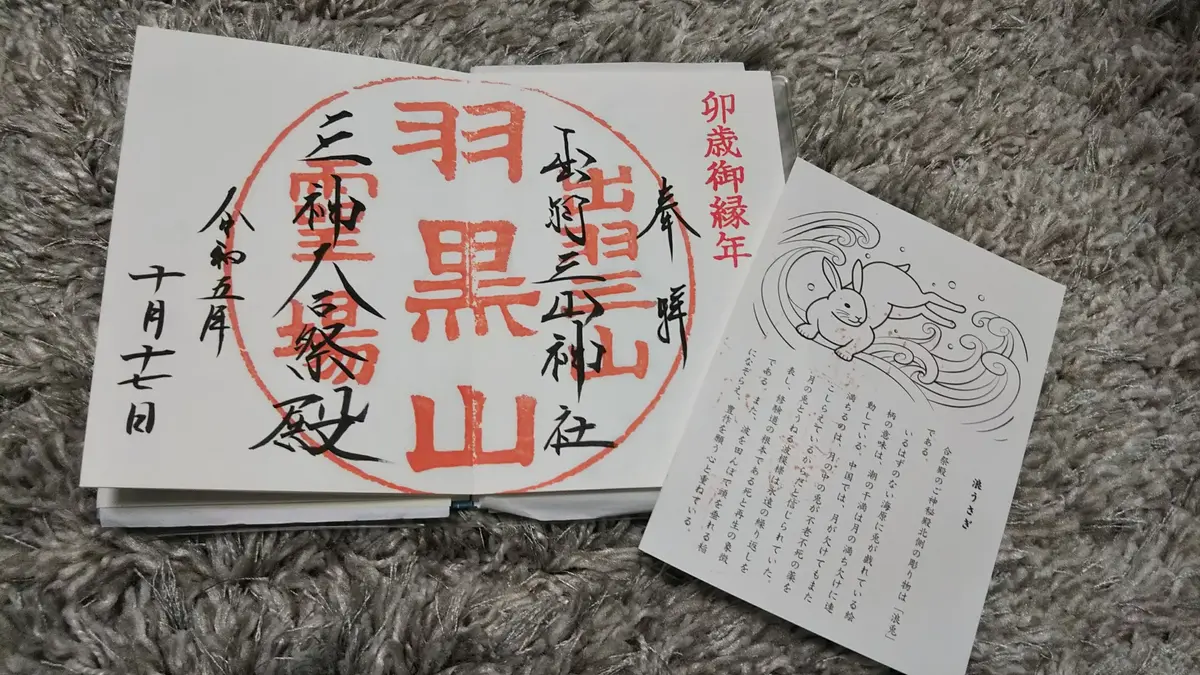 卯歳御縁年
奉拝
出羽三山
出羽三山神社
羽黒山
霊場
三神合祭殿
令和五年
十月十七日
浪うさぎ
合祭殿のご神秘殿北側の彫り物は「浪兎」
である。
いるはずのない海原に兎が戯れている絵
柄の意味は、潮の干満は月の満ち欠けに連
動している。中国では、月が欠けてもまた
満ちるのは、月の中の兎が不老不死の薬を
こしらえているからだと信じられていた。
月の兎とうねる波模様は永遠の繰り返しを
表し、修験道の根本である死と再生の象徴
である。また、波を田んぼで頭を垂れる稲
になぞらえ、豊作を願う心と重ねている。